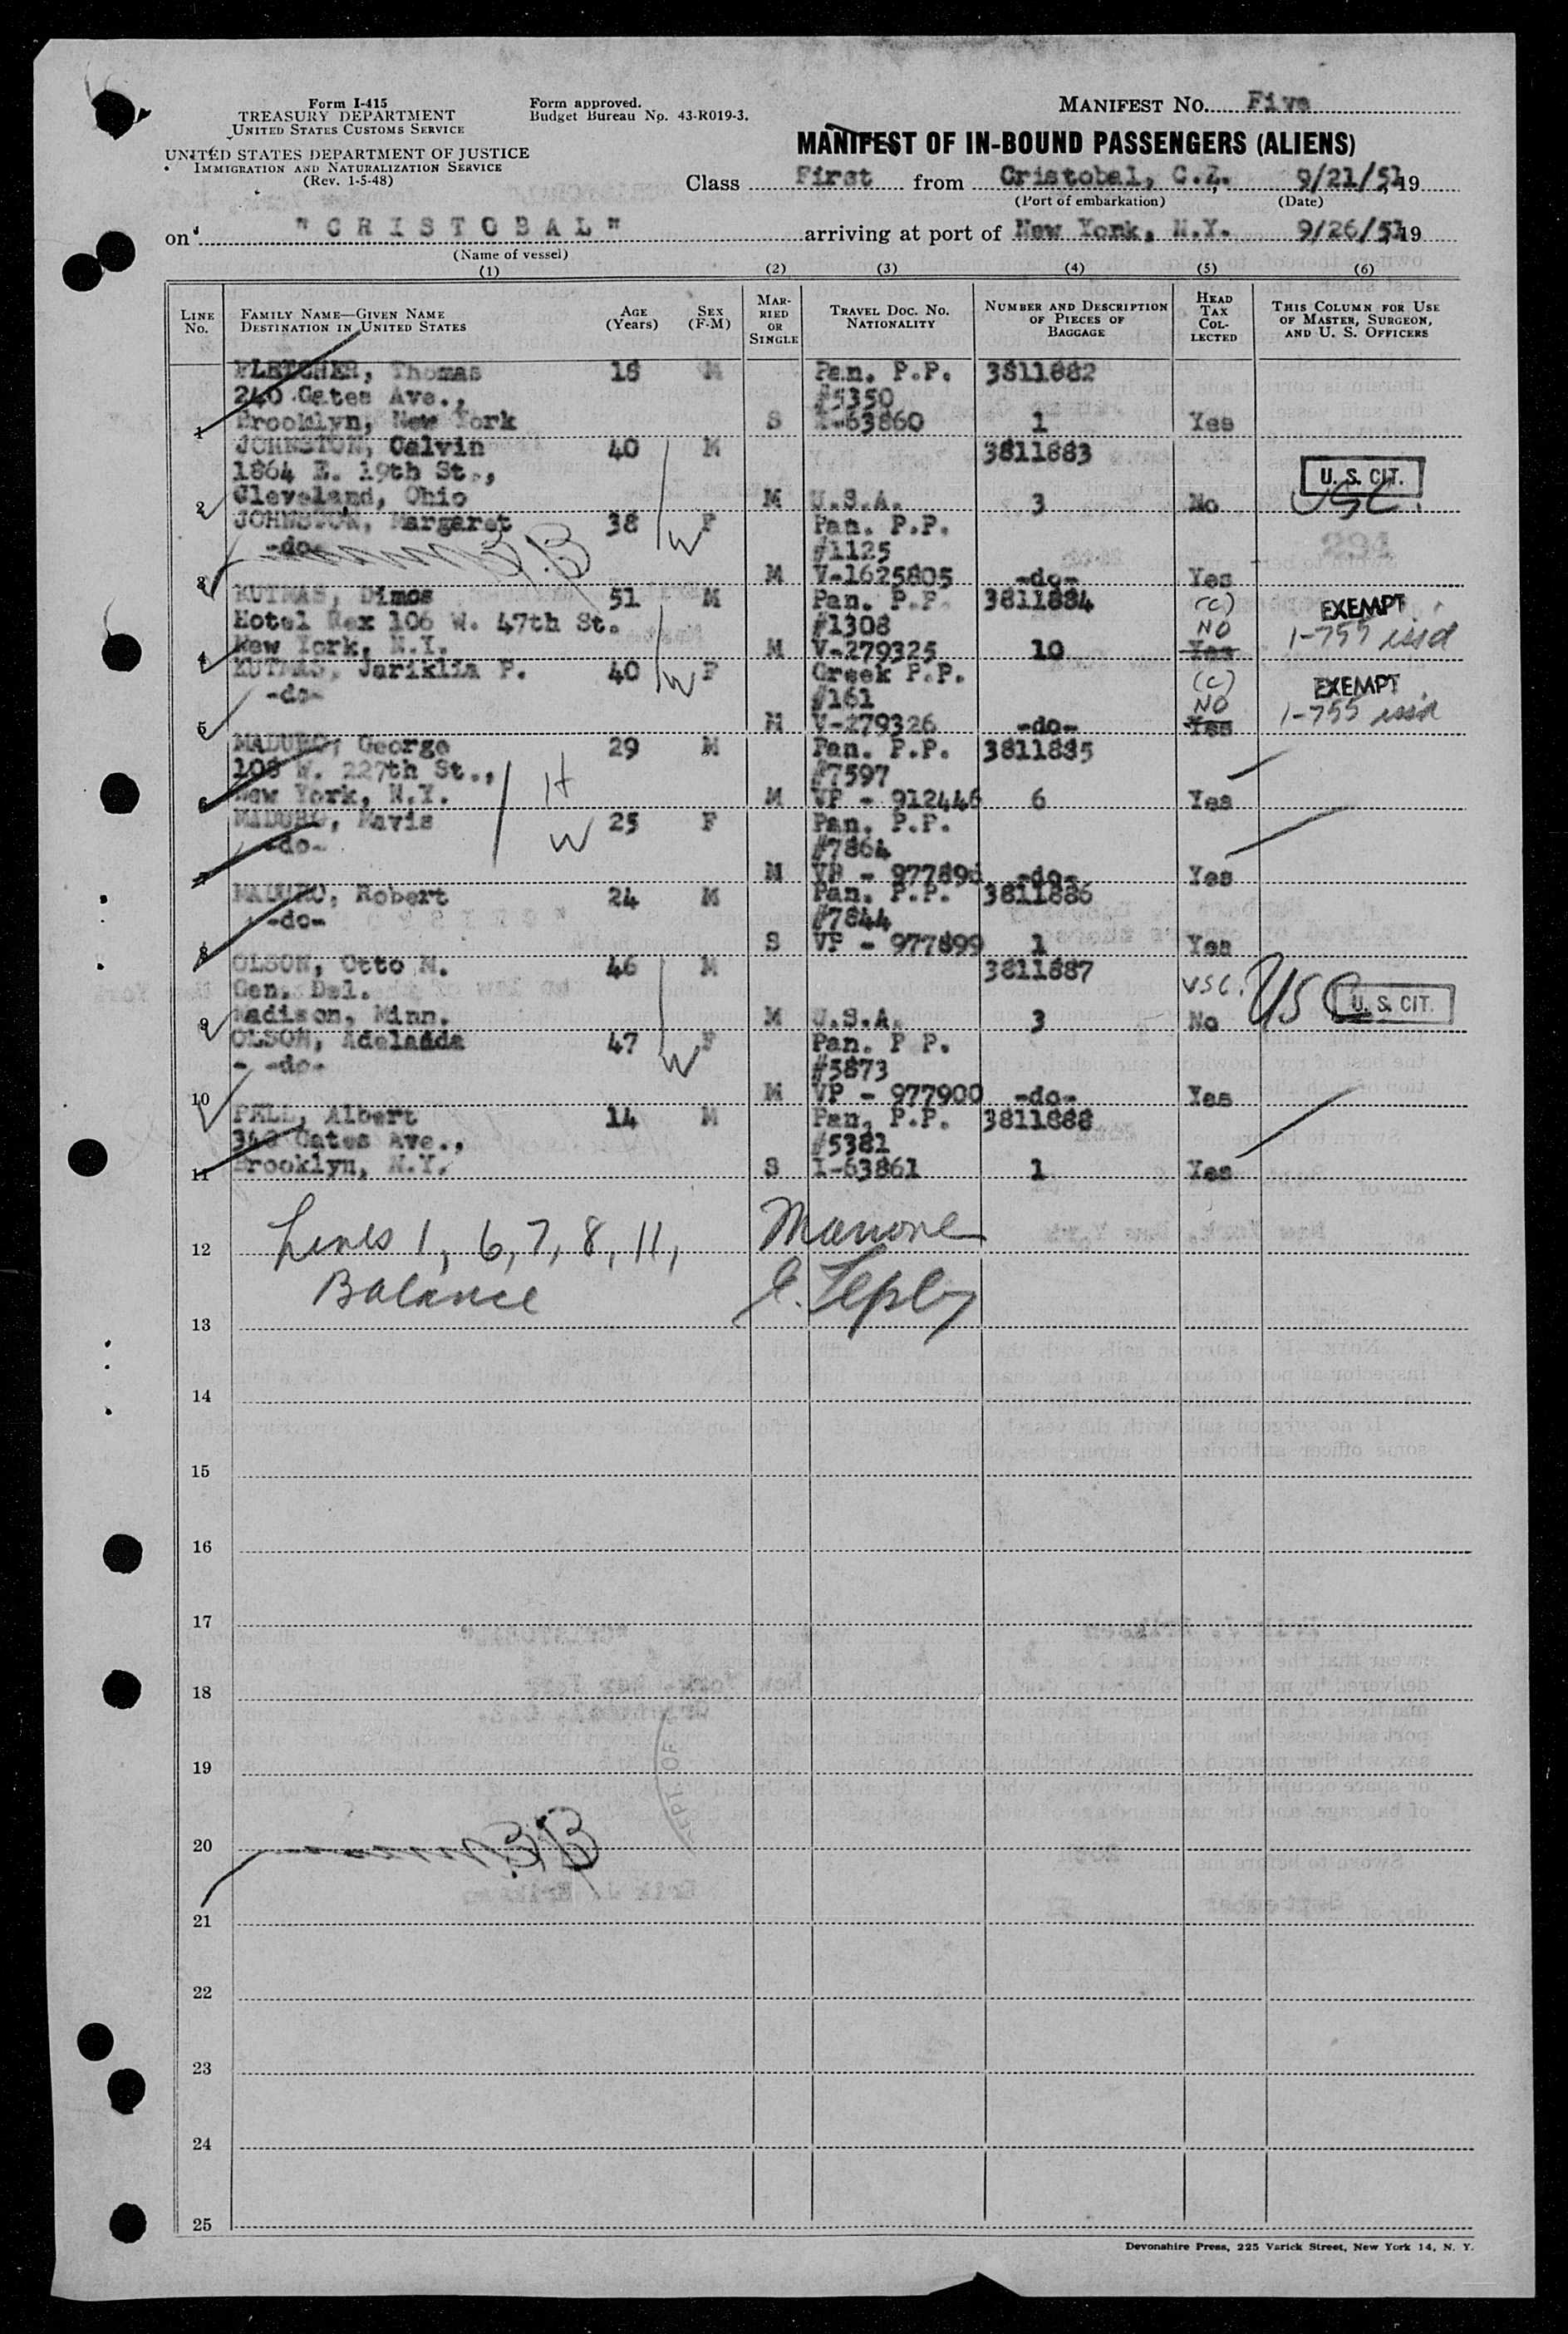 Form I-415
TREASURY DEPARTMENT
UNITED STATES CUSTOMS SERVICE
UNITED STATES DEPARTMENT OF JUSTICE
IMMIGRATION AND NATURALIZATION SERVICE
(Rev. 1-5-48)
Form approved.
Budget Bureau No. 43-R019-3.
MANIFEST NO. Five
MANIFEST OF IN-BOUND PASSENGERS (ALIENS)
Class First from Cristobal, C.Z. 9/21/51, 19
(Port of embarkation) (Date)
on "CRISTOBAL" arriving at port of New York, N.Y. 9/26/51, 19
(Name of vessel)
(1) (2) (3) (4) (5) (6)
LINE No. FAMILY NAME—GIVEN NAME DESTINATION IN UNITED STATES AGE (Years) SEX (F-M) MARRIED OR SINGLE TRAVEL DOC. NO. NATIONALITY NUMBER AND DESCRIPTION OF PIECES OF BAGGAGE HEAD TAX COLLECTED THIS COLUMN FOR USE OF MASTER, SURGEON, AND U. S. OFFICERS
FLETCHER, Thomas 18 M Pan. P.P. 3811882
240 Gates Ave., #5350
1 Brooklyn, New York S I-63860 1 Yes
JOHNSTON, Calvin 40 M 3811883
1864 E. 19th St., U. S. CIT.
2 Cleveland, Ohio M U.S.A. 3 No USC.
JOHNSTON, Margaret 38 F Pan. P.P.
-do- W #1125
3 M V-1625805 -do- Yes
KUTMAS, Dimos 51 M Pan. P.P. 3811884 (c) EXEMPT
Hotel Rex 106 W. 47th St. #1308 NO 1-755 iss'd
4 New York, N.Y. M V-279325 10 Yes
KUTMAS, Jariklia P. 40 F Greek P.P. (c) EXEMPT
-do- W #161 NO 1-755 iss'd
5 M V-279326 -do- Yes
MADURO, George 29 M Pan. P.P. 3811885
108 W. 227th St., H #7597
6 New York, N.Y. M VP - 912446 6 Yes
MADURO, Mavis W 25 F Pan. P.P.
-do- #7864
7 M VP - 977898 -do- Yes
MADURO, Robert 24 M Pan. P.P. 3811886
-do- #7844
8 S VP - 977899 1 Yes
OLSON, Otto N. 46 M 3811887
Gen. Del. USC. USC U. S. CIT.
9 Madison, Minn. M U.S.A. 3 No
OLSON, Adelaida 47 F Pan. P P.
- -do- W #5873
10 M VP - 977900 -do- Yes
PELL, Albert 14 M Pan. P.P. 3811888
340 Gates Ave., #5381
11 Brooklyn, N.Y. S I-63861 1 Yes
12 Lines 1, 6, 7, 8, 11, Manone
Balance
13
14
15
16
17
18
19
20
21
22
23
24
25
Devonshire Press, 225 Varick Street, New York 14, N. Y.